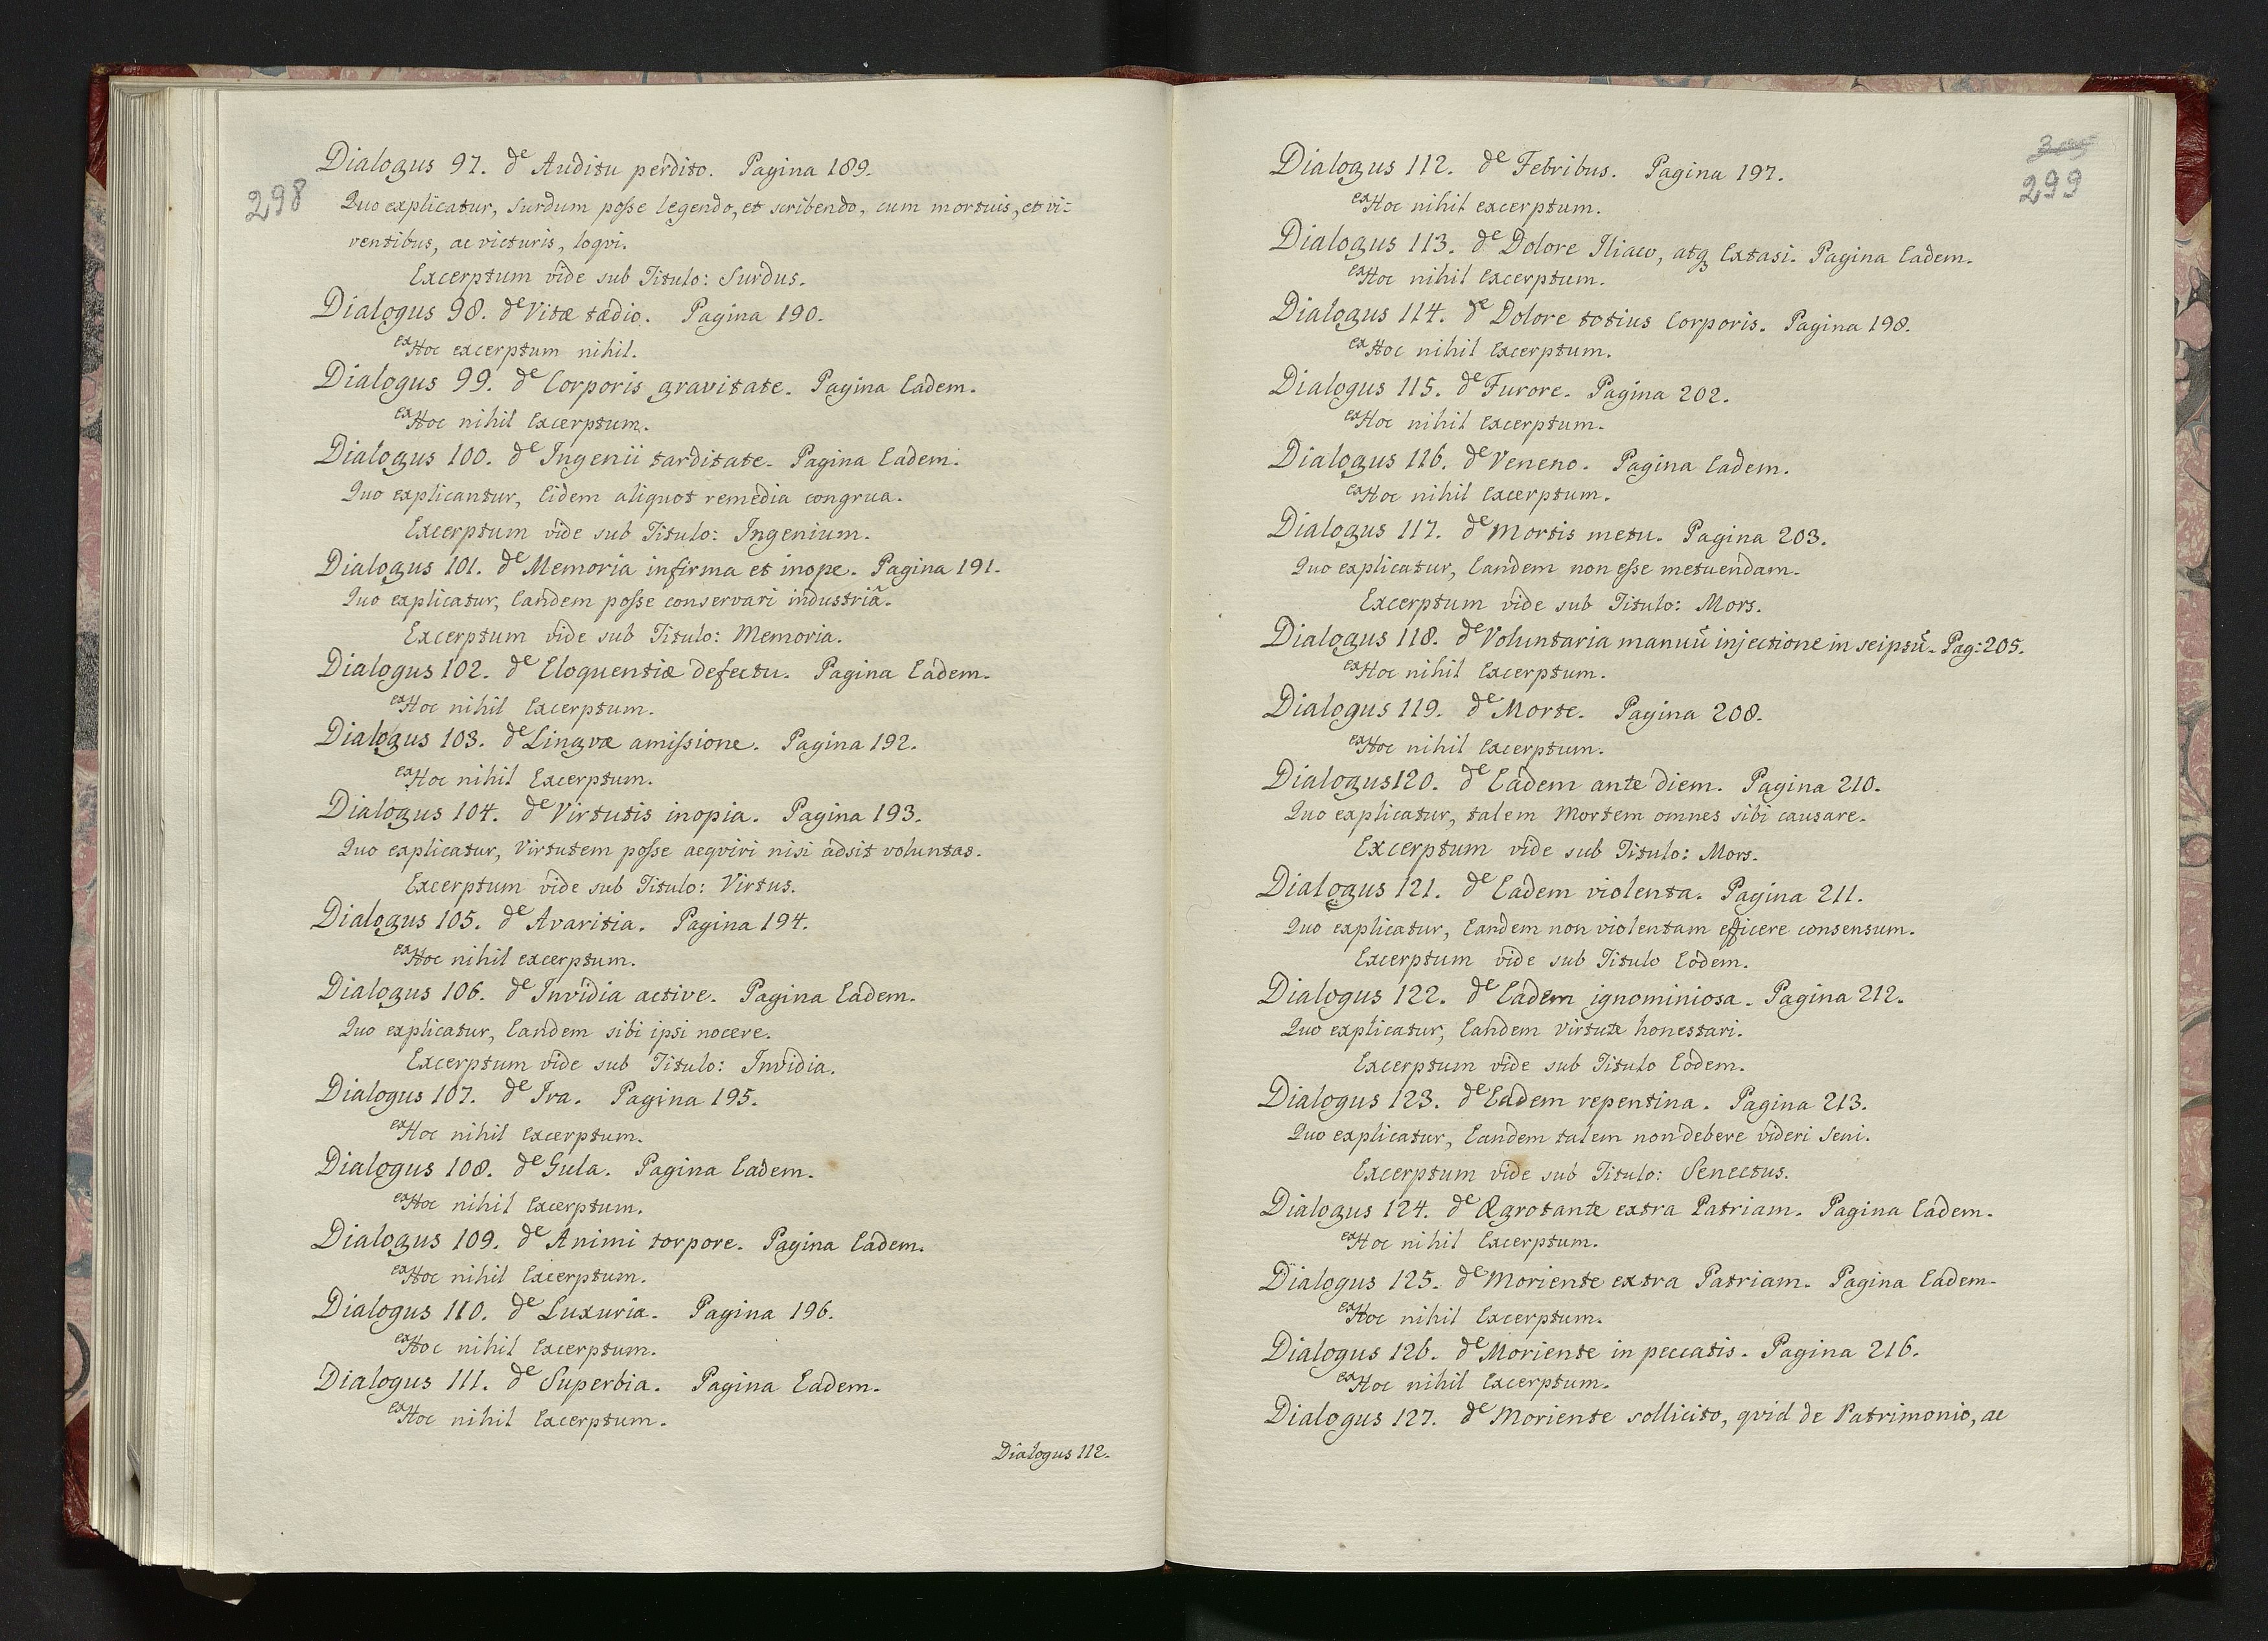 298
Dialogus 97. de Auditu perdito. Pagina 189.
Quo explicatur, surdum posse legendo, et scribendo, cum mortuis, et vi=
ventibus, ac victuris, loqvi.
Excerptum vide sub Titulo: Surdus.
Dialogus 98. de Vitæ tædio. Pagina 190.
ex Hoc excerptum nihil.
Dialogus 99. de Corporis gravitate. Pagina Eadem.
ex Hoc nihil Excerptum.
Dialogus 100. de Ingenii tarditate. Pagina Eadem.
Quo explicantur, Eidem aliquot remedia congrua.
Excerptum vide sub Titulo: Ingenium.
Dialogus 101. de Memoria infirma et inope. Pagina 191.
Quo explicatur, Eandem posse conservari industriâ.
Excerptum vide sub Titulo: Memoria.
Dialogus 102. de Eloquentiæ defectu. Pagina Eadem.
ex Hoc nihil Excerptum.
Dialogus 103. de Lingvæ amissione. Pagina 192.
ex Hoc nihil Excerptum.
Dialogus 104. de Virtutis inopia. Pagina 193.
Quo explicatur, Virtutem posse aeqviri nisi adsit voluntas.
Excerptum vide sub Titulo: Virtus.
Dialogus 105. de Avaritia. Pagina 194.
ex Hoc nihil excerptum.
Dialogus 106. de Invidia active. Pagina Eadem.
Quo explicatur, Eandem sibi ipsi nocere.
Excerptum vide sub Titulo: Invidia.
Dialogus 107. de Ira. Pagina 195.
ex Hoc nihil Excerptum.
Dialogus 108. de Gula. Pagina Eadem.
ex Hoc nihil Excerptum.
Dialogus 109. de Animi torpore. Pagina Eadem.
ex Hoc nihil Excerptum.
Dialogus 110. de Luxuria. Pagina 196.
ex Hoc nihil Excerptum.
Dialogus 111. de Superbia. Pagina Eadem.
ex Hoc nihil Excerptum.
Dialogus 112.
299
Dialogus 112. de Febribus. Pagina 197.
ex Hoc nihil excerptum.
Dialogus 113. de Dolore Iliaco, atq3 Extasi. Pagina Eadem.
ex Hoc nihil Excerptum.
Dialogus 114. de Dolore totius Corporis. Pagina 198.
ex Hoc nihil Excerptum.
Dialogus 115. de Furore. Pagina 202.
ex Hoc nihil Excerptum.
Dialogus 116. de Veneno. Pagina Eadem.
ex Hoc nihil Excerptum.
Dialogus 117. de Mortis metu. Pagina 203.
Quo explicatur, Eandem non esse metuendam.
Excerptum vide sub Titulo: Mors.
Dialogus 118. de Voluntaria manuũ injectione in seipsũ. Pag: 205.
ex Hoc nihil Excerptum.
Dialogus 119. de Morte. Pagina 208.
ex Hoc nihil Excerptum.
Dialogus 120. de Eadem ante diem. Pagina 210.
Quo explicatur, talem Mortem omnes sibi causare.
Excerptum vide sub Titulo: Mors.
Dialogus 121. de Eadem violenta. Pagina 211.
Quo explicatur, Eandem non violentam efficere consensum.
Excerptum vide sub Titulo Eodem.
Dialogus 122. de Eadem ignominiosa. Pagina 212.
Quo explicatur, Eandem Virtute honestari.
Excerptum vide sub Titulo Eodem.
Dialogus 123. de Eadem repentina. Pagina 213.
Quo explicatur, Eandem talem non debere videri Seni.
Excerptum vide sub Titulo: Senectus.
Dialogus 124. de Ægrotante extra Patriam. Pagina Eadem.
ex Hoc nihil Excerptum.
Dialogus 125. de Moriente extra Patriam. Pagina Eadem.
ex Hoc nihil Excerptum.
Dialogus 126. de Moriente in peccatis. Pagina 216.
ex Hoc nihil Excerptum.
Dialogus 127. de Moriente sollicito, qvid de Patrimonio, ac